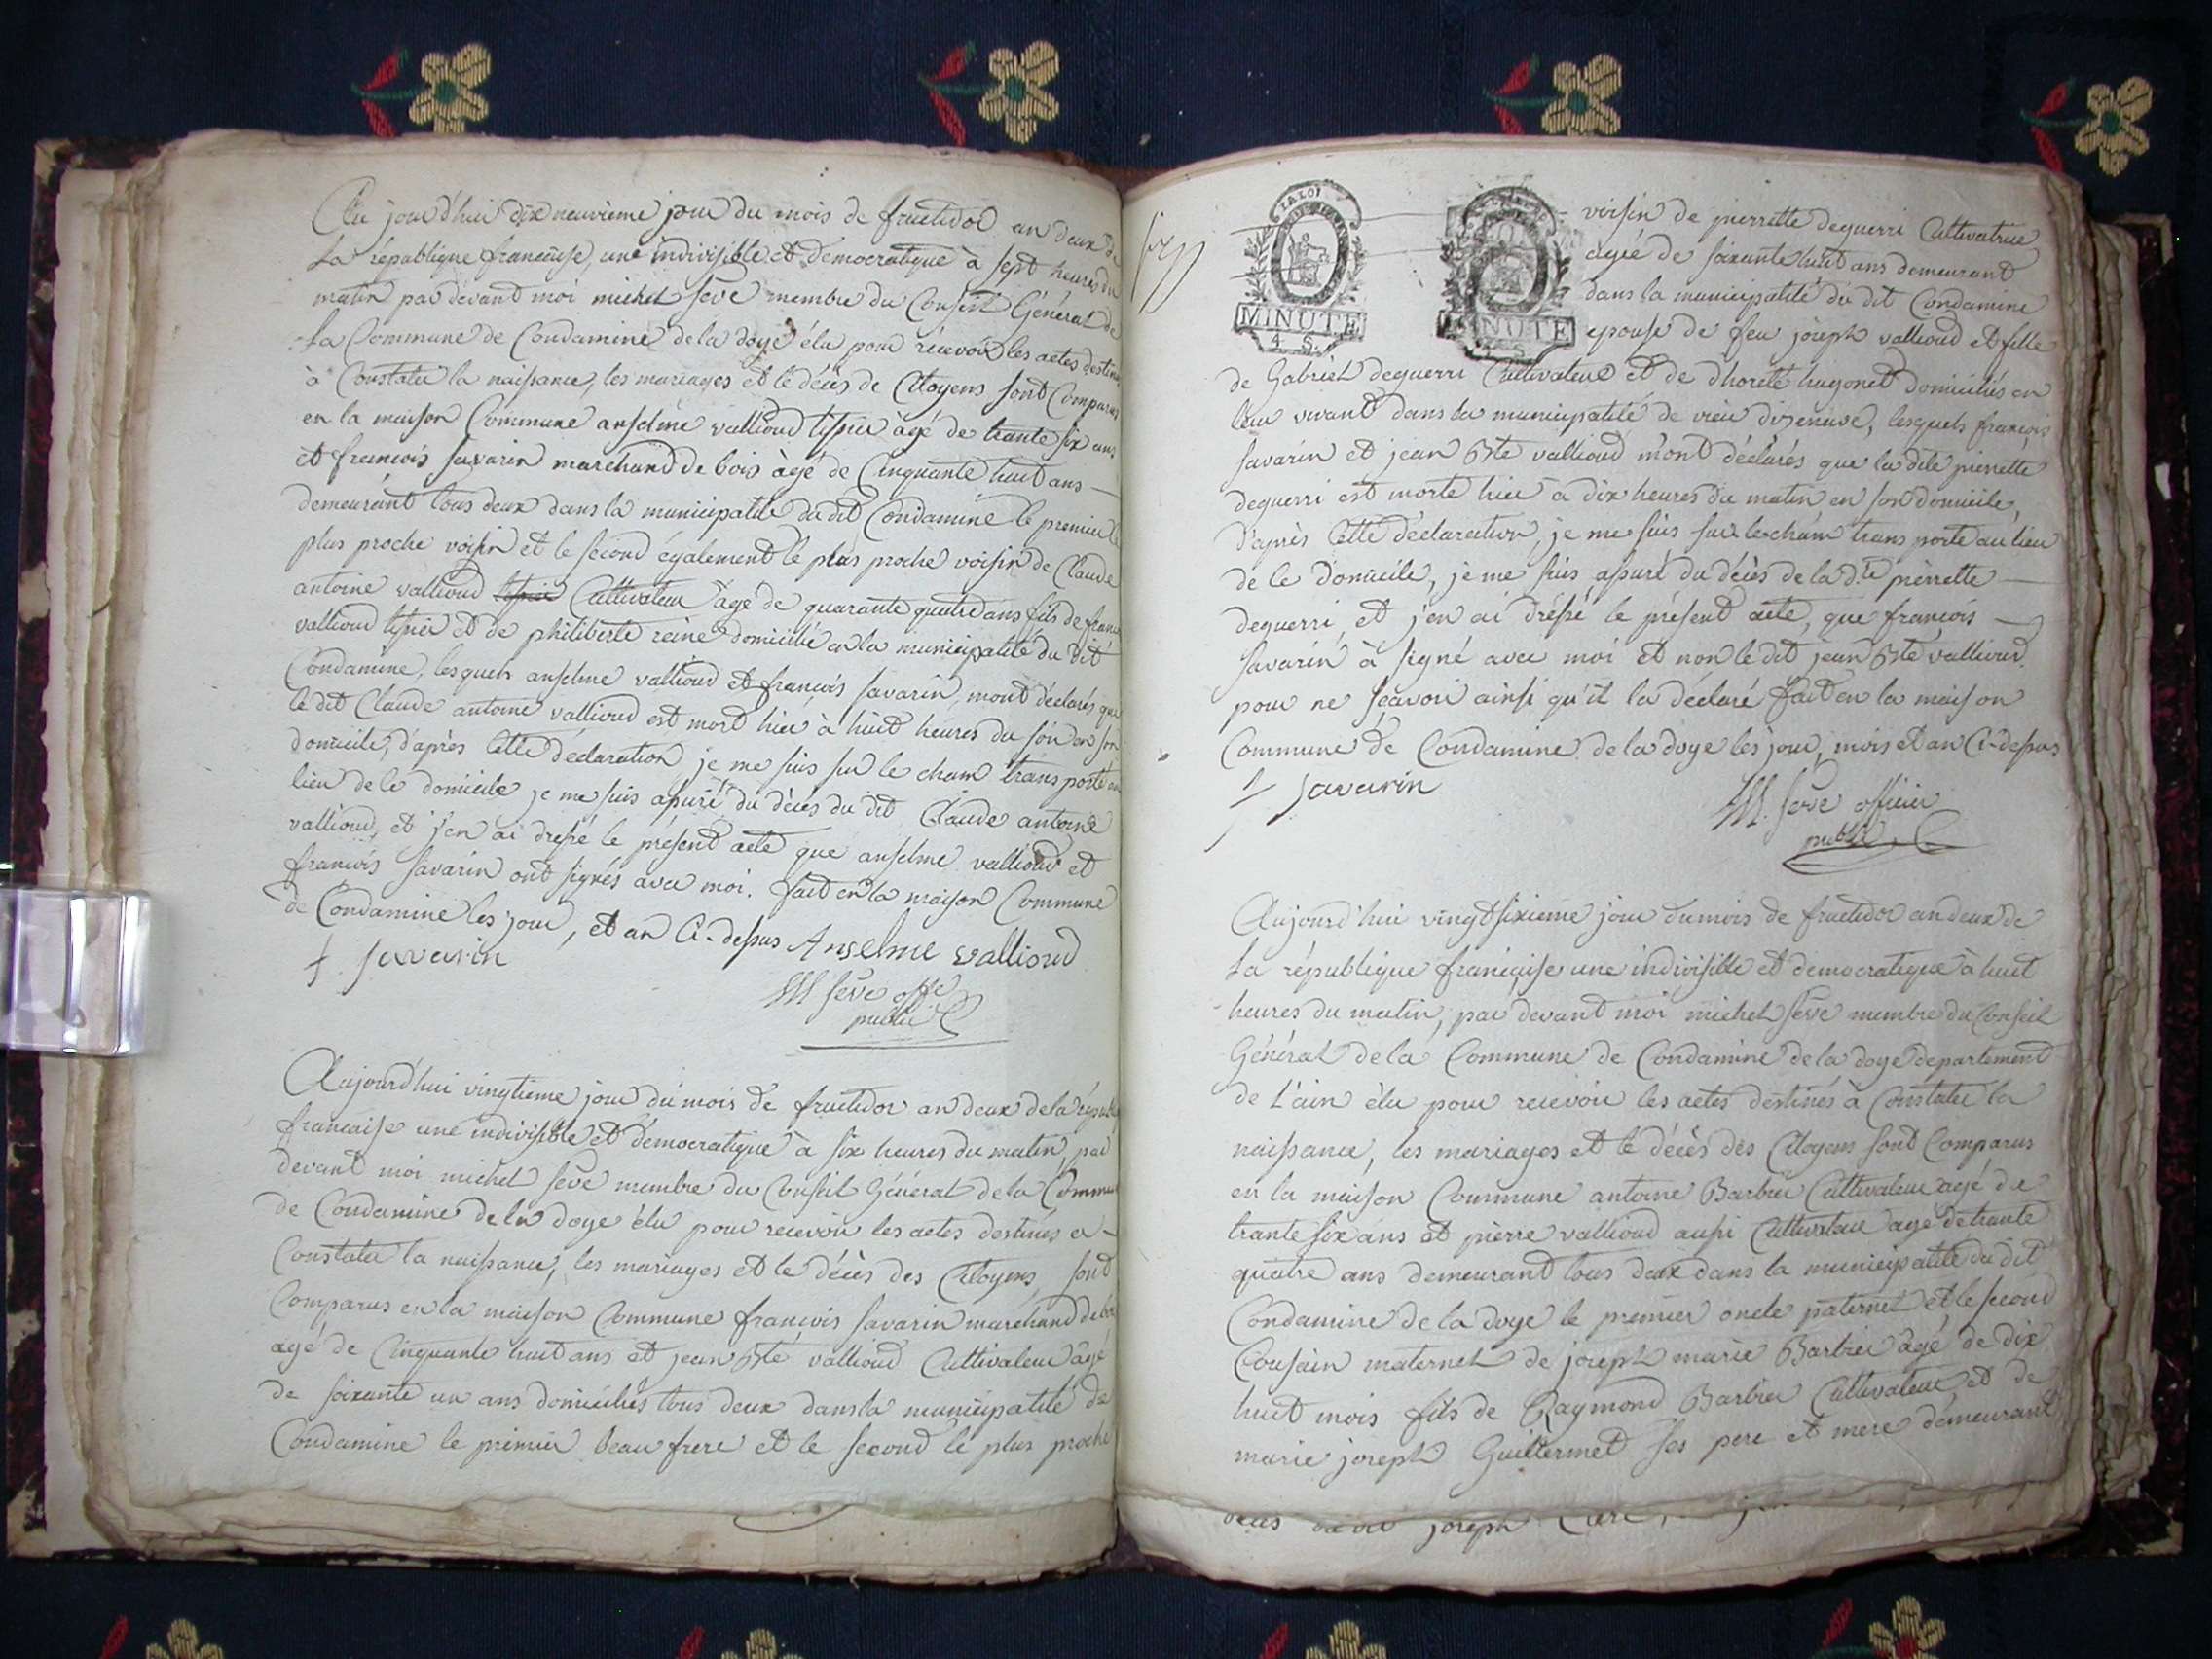 Au jourd'hui dix neuvieme jour du mois de fructidor an deux de
La république francaise, une indivisible et democratique à sept heures du
matin par devant moi michel seve membre du Conseil Général de
La Commune de Condamine de la doye élu pour récevoir les actes destinés
à Constater la naissance, les mariages et le décès de Citoyens sont Comparus
en la maison Commune anselme vallioud tissier âgé de trante six ans
et francois savarin marchand de bois âgé de Cinquante huit ans
demeurant tous deux dans la municipalité du dit Condamine le premier le
plus proche voisin et le second également le plus proche voisin de Claude
antoine vallioud tissier Cultivateur âgé de quarante quatre ans fils de francois
vallioud tissier et de philiberte reine domicilié a la municipalité du dit
Condamine, lesquels anselme vallioud et francois savarin, mont déclarés que
le dit Claude antoine vallioud est mort hier à huit heures du soir en son
domicile, d'après Cette déclaration je me suis sur le cham transporté au
lieu de le domicile je me suis assuré du décès du dit Claude antoine
vallioud, et j'en ai dressé le présent acte que anselme vallioud et
francois savarin ont signés avec moi. fait en la maison Commune
de Condamine les jour, et an Ci-dessus Anselme vallioud
f. savarin
M seve offe
public
Aujourd'hui vingtieme jour du mois de fructidor an deux de la répub
francaise une indivisible et démocratique à six heures du matin, par
devant moi michel seve membre du Conseil Général de la Commune
de Condamine de la doye élu pour recevoir les actes destinés a
Constater la naissance, les mariages et le décès des Citoyens, sont
Comparus en la maison Commune francois savarin marchand de bois
agé de Cinquante huit ans et jean Bte vallioud Cultivateur âgé
de soixante un ans domiciliés tous deux dans la municipalité de
Condamine le prémier beau frere et le second le plus proche
LA LOI
MINUTE
4 S.
MINUTE
voisin de pierrette deguerri Cultivatrice
agée de soixante huit ans demeurant
dans la municipalité du dit Condamine
epouse de feu joseph vallioud et fille
de Gabriel deguerri Cultivateur et de hugonet domiciliés en
leur vivant dans la municipalité de vieu disenave, lesquels francois
savarin et jean Bte vallioud m'ont déclarés que la dite pierrette
deguerri est morte hier à dix heures du matin en son domicile,
D'après Cette déclaration, je me suis sur le cham transporté au lieu
de le domicile, je me suis assuré du décès de la dte pierrette
deguerri et j'en ai dréssé le présent acte, que francois
savarin à signé avec moi et non le dit jean Bte vallioud
pour ne scavoir ainsi qu'il la déclaré fait en la maison
Commune de Condamine de la doye les jour, mois et an Ci-dessus
f savarin
M. seve officier
public
Aujourd'hui vingt sixieme jour du mois de fructidor an deux de
La république francaise une indivisible et democratique à huit
heures du matin, par devant moi michel seve membre du Conseil
Général de la Commune de Condamine de la doye departement
de L'ain élu pour recevoir les actes destinés à Constater la
naissance, les mariages et le décès des Citoyens sont Comparus
en la maison Commune antoine Barbier Cultivateur agé de
trante six ans et pierre vallioud aussi Cultivateur agé de trante
quatre ans demeurant tous deux dans la municipalité du dit
Condamine de la doye le premier oncle paternel et le second
Cousain maternel de joseph marie Barbier âgé de dix
huit mois fils de Raymond Barbier Cultivateur, et de
marie joseph Guillermet ses pere et mere démeurant
joseph